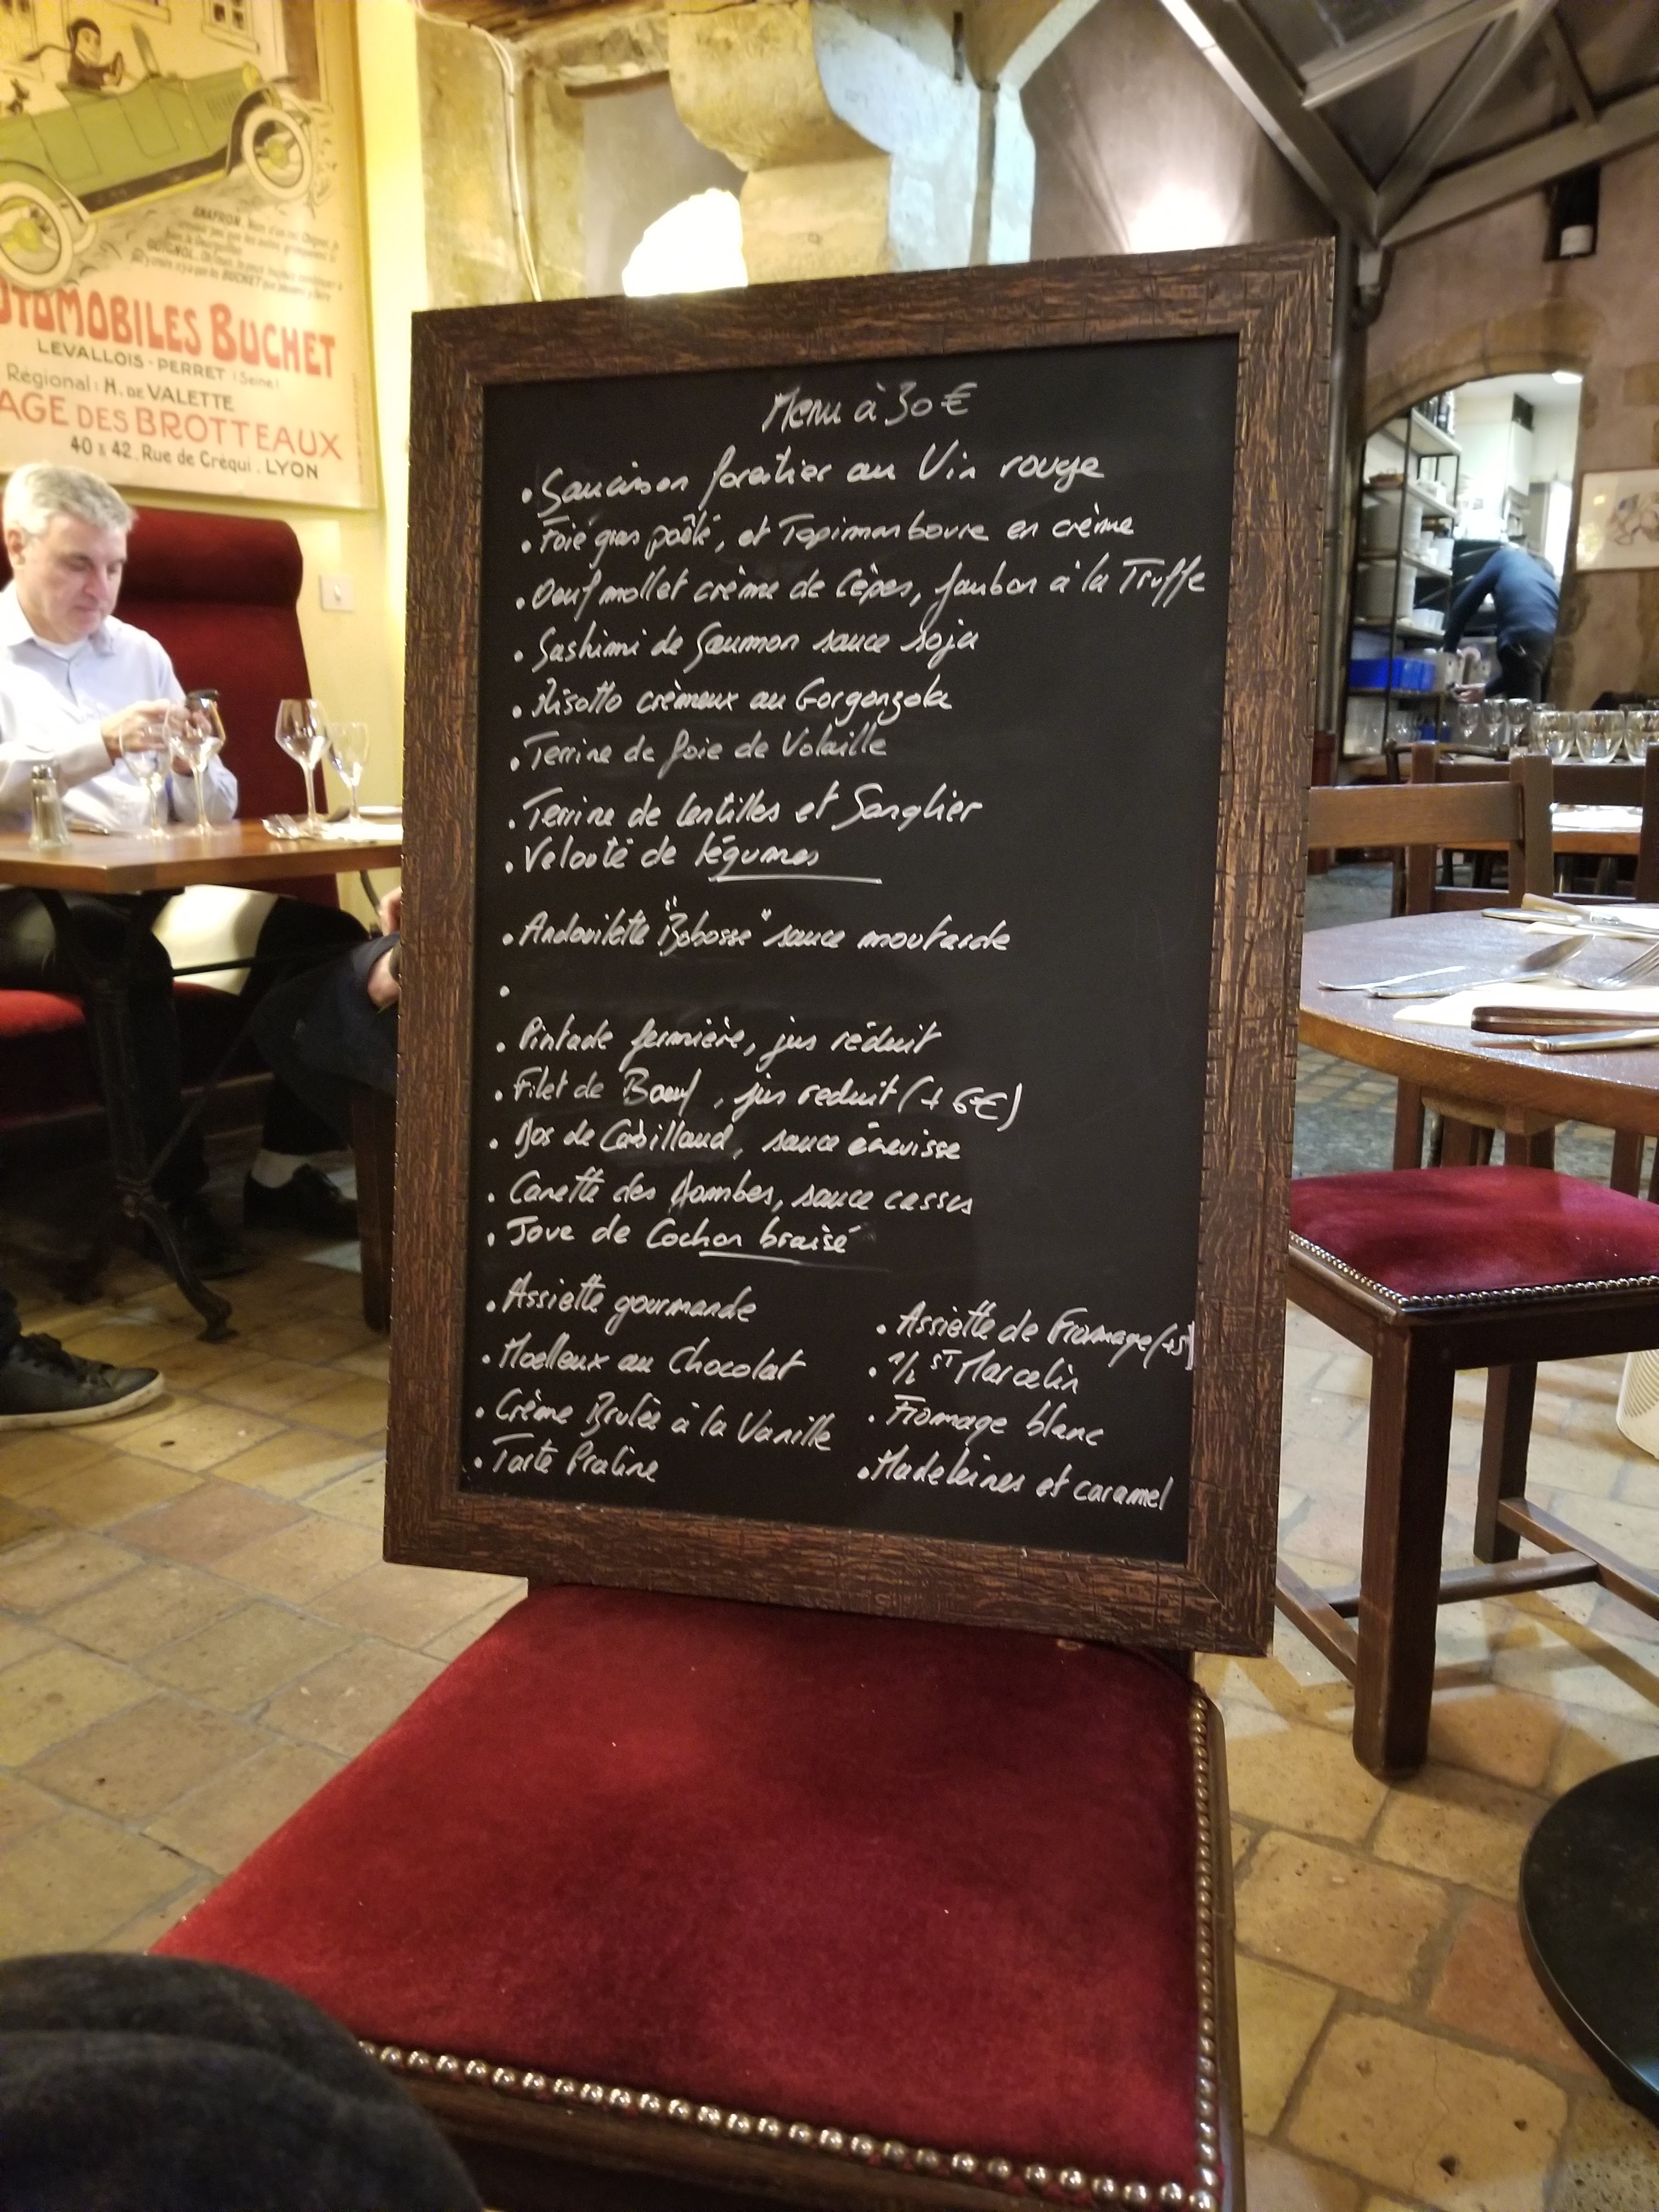 ANAFRON.
GUIGNOL.
BUCHET
OTOMOBILES BUCHET
LEVALLOIS - PERRET (Seine)
Régional: H. DE VALETTE
AGE DES BROTTEAUX
40 & 42. Rue de Créqui. LYON
Menu à 30 €
• Saucisson forestier au Vin rouge
• Foie gras poêlé, et Topinamboure en crème
• Oeuf mollet crème de Cèpes, Jambon à la Truffe
• Sashimi de Saumon sauce soja
• Risotto crèmeux au Gorgonzola
• Terrine de foie de Volaille
• Terrine de lentilles et Sanglier
• Velouté de légumes
• Andouilette "Bobosse" sauce moutarde
•
• Pintade fermière, jus réduit
• Filet de Boeuf, jus reduit (+ 6€)
• Dos de Cabillaud, sauce écrevisse
• Canette des Dombes, sauce cassis
• Joue de Cochon braisé
• Assiette gourmande
• Moelleux au Chocolat
• Crème Brulée à la Vanille
• Tarte Praline
• Assiette de Fromage (+5)
• 1/2 ST Marcelin
• Fromage blanc
• Madeleines et caramel